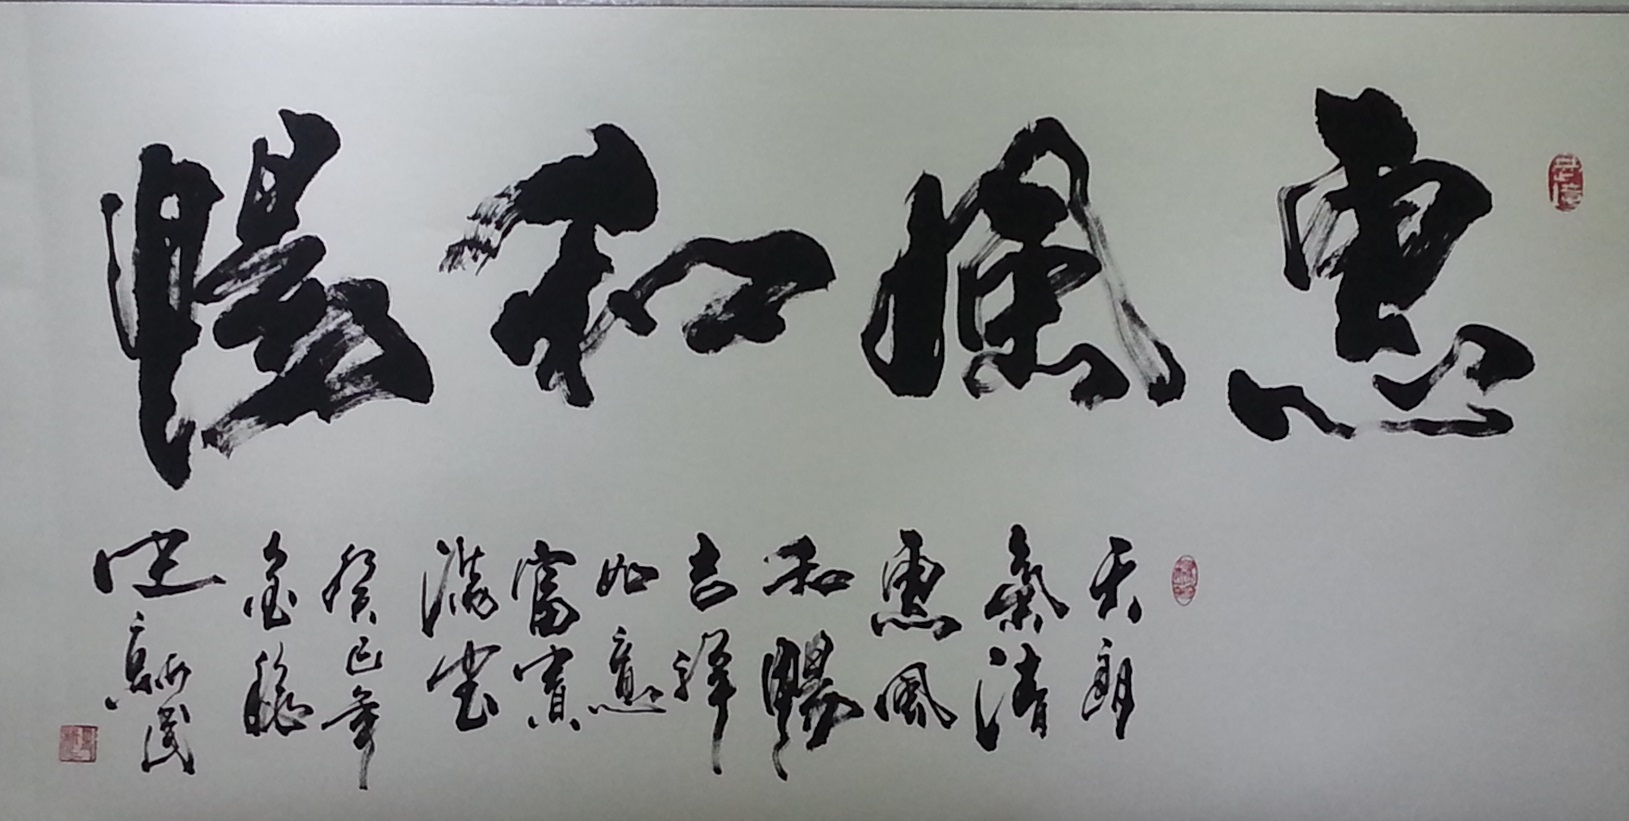 惠風和暢
天朗
氣清
惠風
和暢
吉祥
如意
富貴
滿堂
癸巳年
金秋